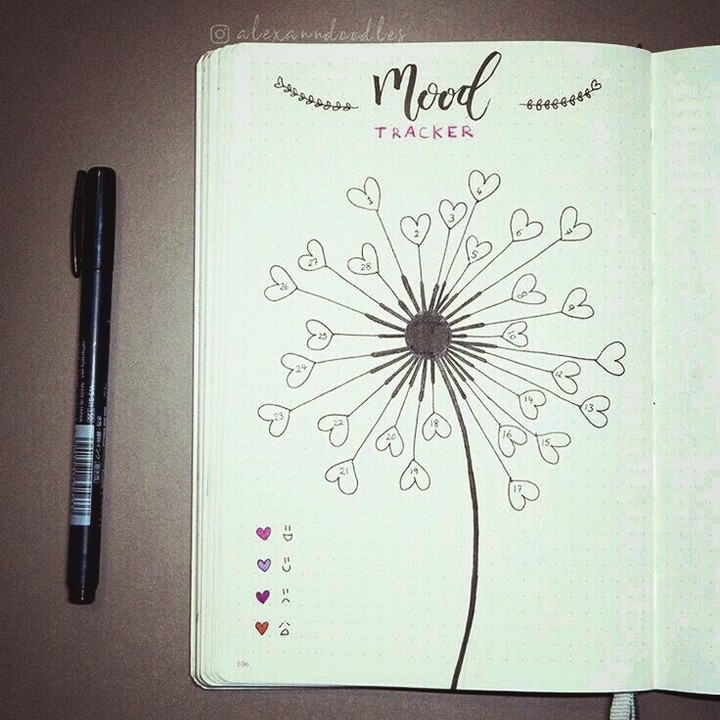 alexanndoodles
Mood
TRACKER
1
4
3
2
6
7
5
27
28
26
8
9
10
25
11
24
12
14
13
23
22
18
20
16
15
21
19
17
106
MADE IN JAPAN